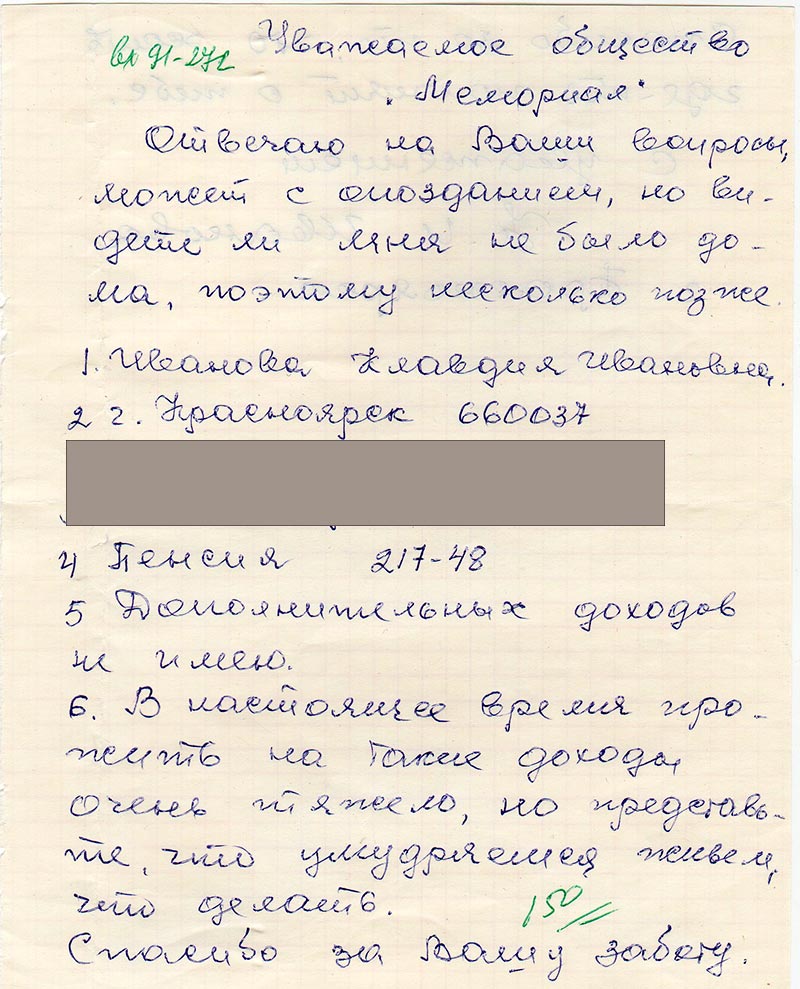 вх 91-272
Уважаемое общество
„Мемориал“
Отвечаю на Ваши вопросы,
может с опозданием, но ви-
дите ли мня не было до-
ма, поэтому несколько позже.
1. Иванова Клавдия Ивановна.
2 г. Красноярск 660037
4 Пенсия 217-48
5 Дополнительных доходов
не имею.
6. В настоящее время про-
жить на такие доходы
очень тяжело, но представь-
те, что умудряемся живем,
что делать.
150
Спасибо за Вашу заботу.